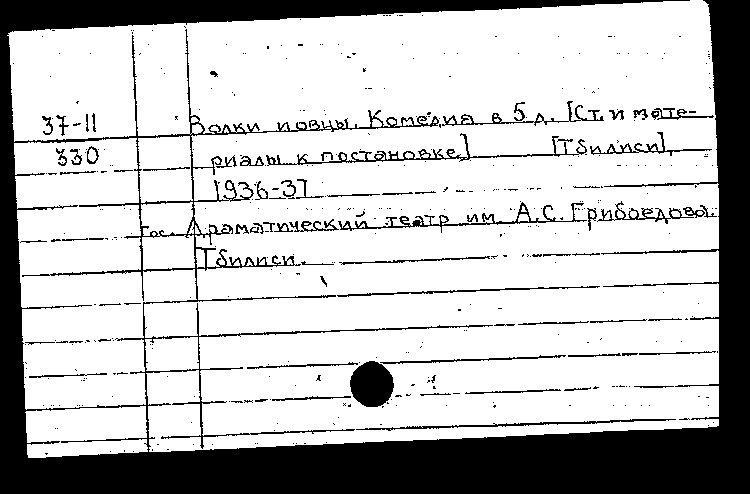 37-11 Волки и овцы. Комедия в 5 д. [Ст. и мате-
330 риалы к постановке.] [Тбилиси],
1936-37
Гос. Драматический театр им. А.С. Грибоедова.
Тбилиси.